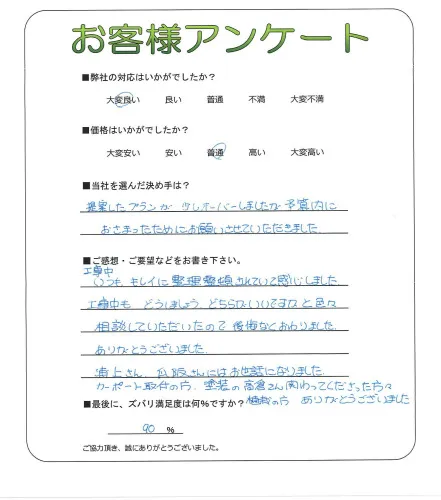 お客様アンケート
■弊社の対応はいかがでしたか?
大変良い 良い 普通 不満 大変不満
■価格はいかがでしたか?
大変安い 安い 普通 高い 大変高い
■当社を選んだ決め手は?
提案したプランが 少しオーバーしましたが 予算内に
おさまったためにお願いさせていただきました
■ご感想・ご要望などをお書き下さい。
工事中
いつも キレイに 整理整頓されていて感じしました
工事中も どうしましょう、どちらがいいですかと色々
相談していただいたので 後悔なくおわりました。
ありがとうございました
浦上さん さんにはお世話になりました
カーポート取付の方、塗装の高倉さん関わってくださった方々
■最後に、ズバリ満足度は何%ですか? の方 ありがとうございました
90 %
ご協力頂き、誠にありがとうございました。